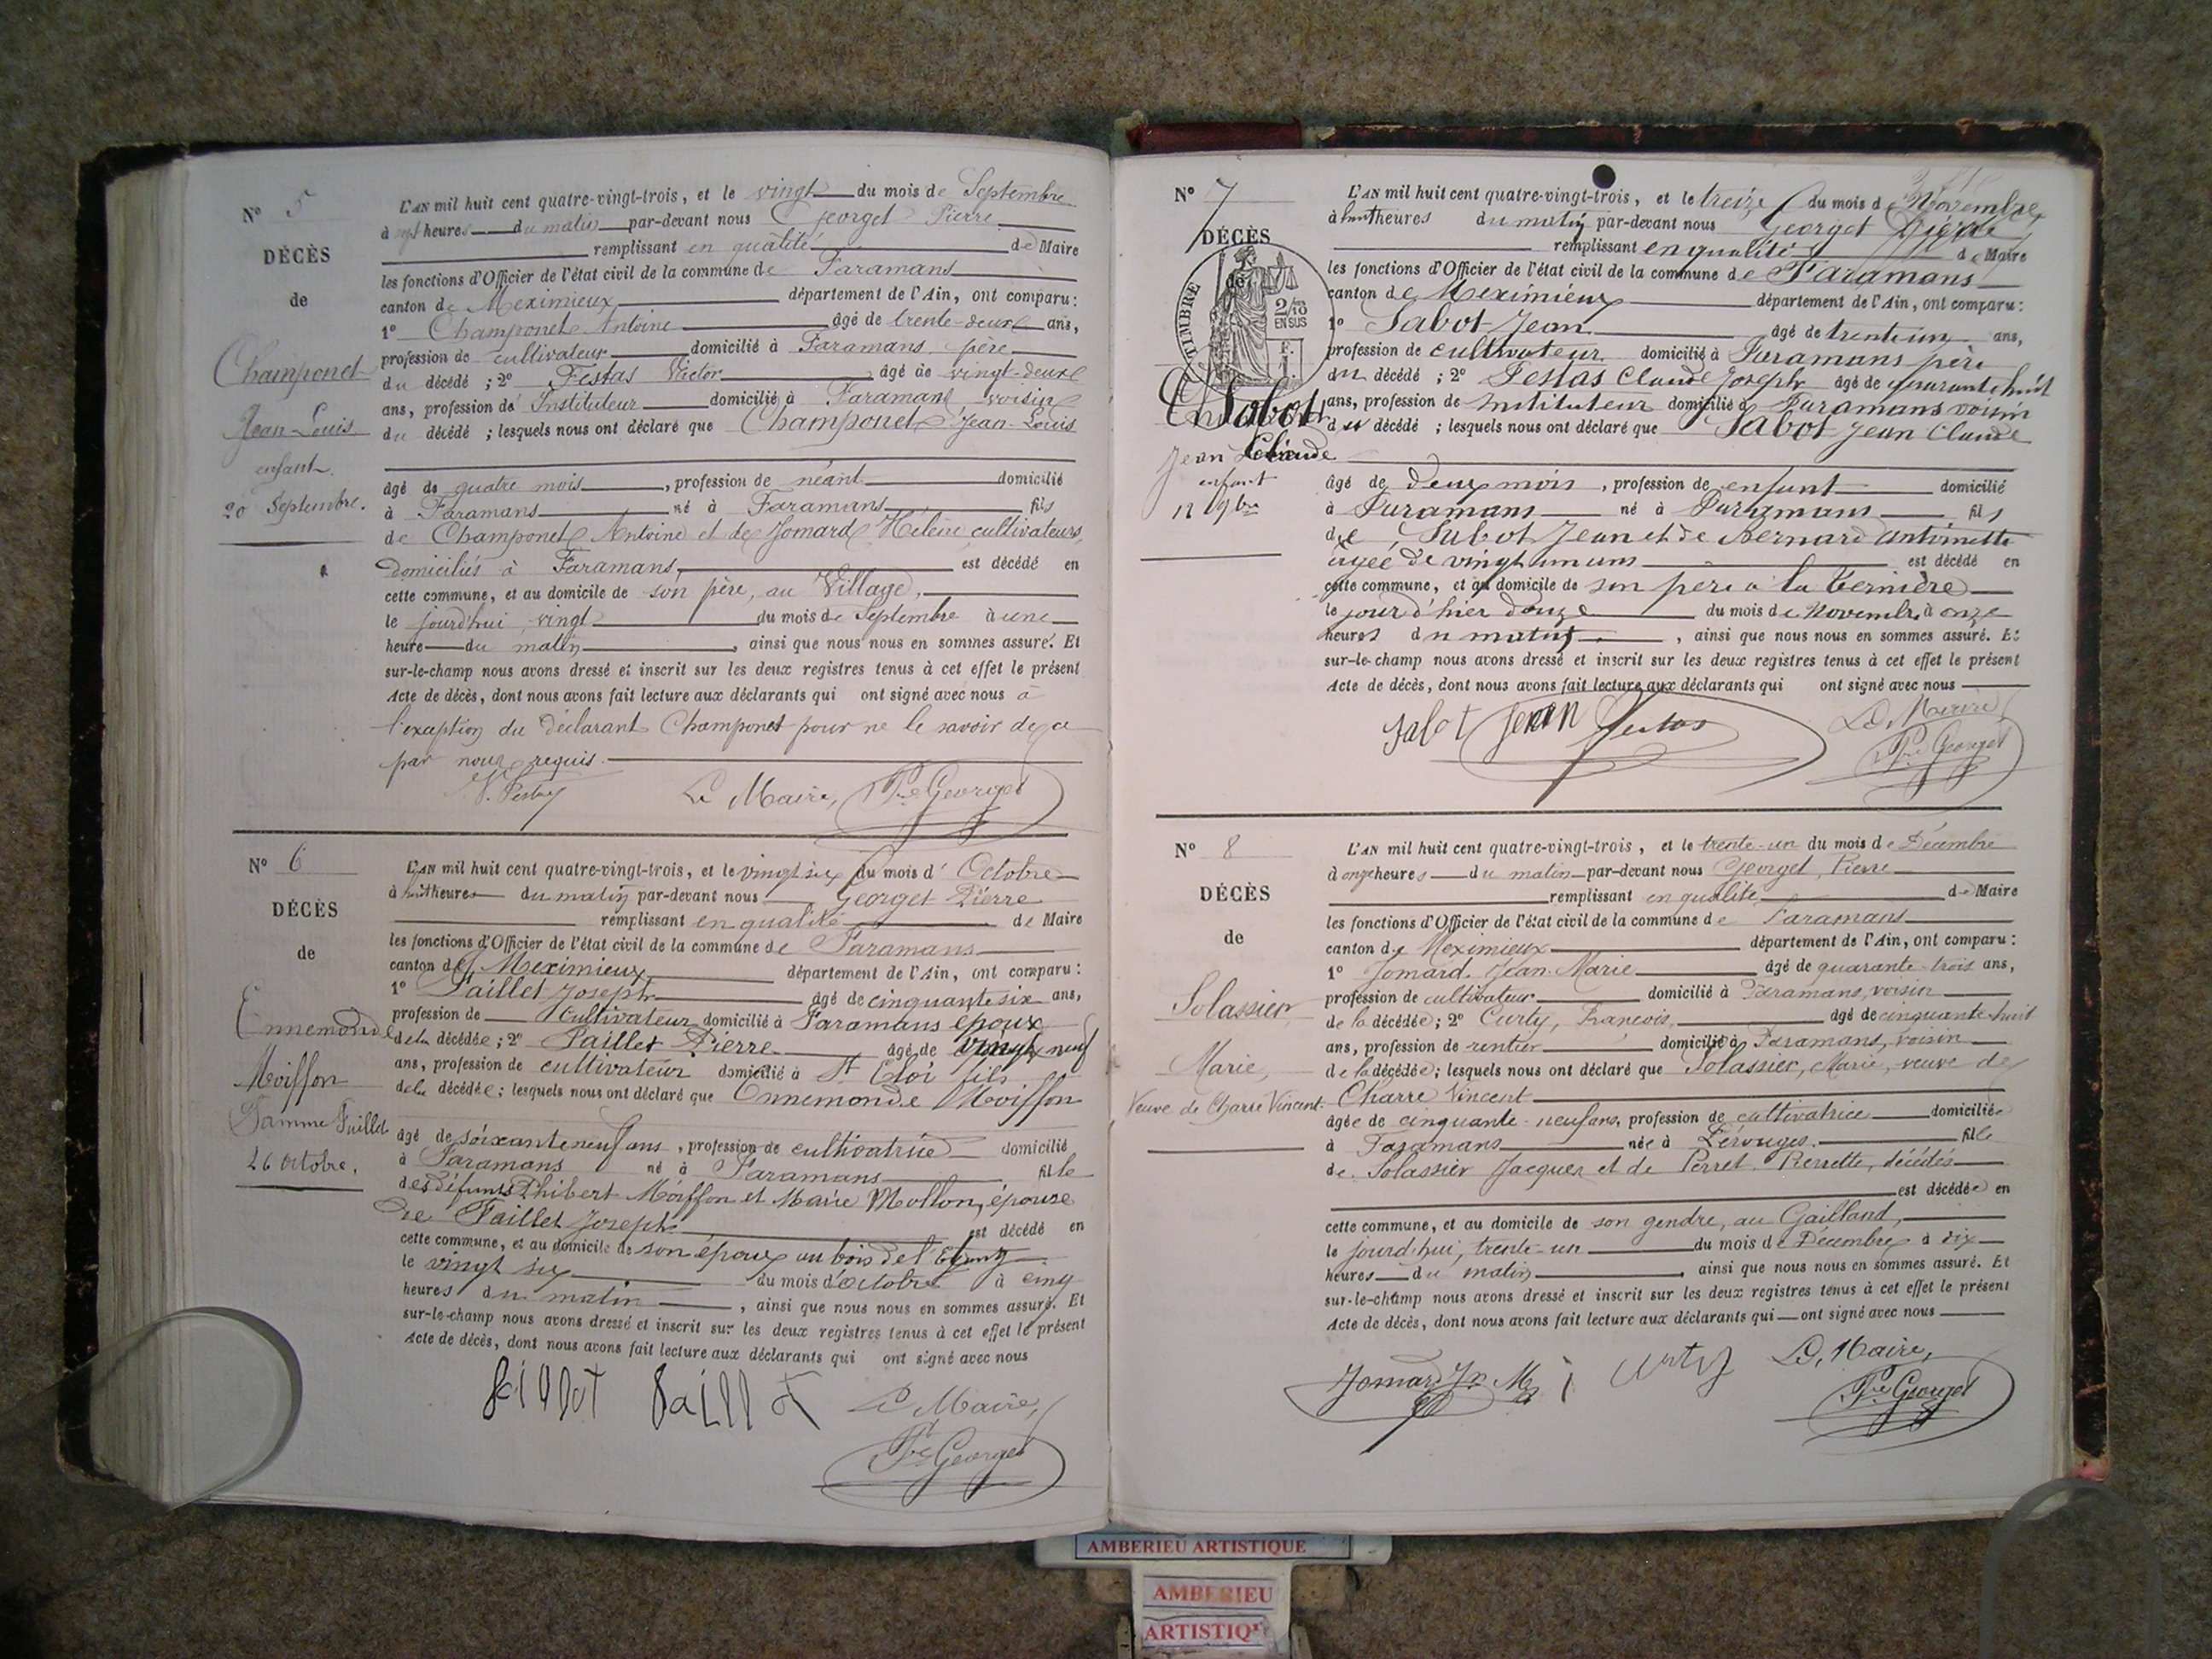 N° 5
DÉCÈS
de
Champonet
Jean-Louis
enfant.
20 Septembre.
L'AN mil huit cent quatre-vingt-trois, et le vingt du mois de Septembre
à sept heures du matin par-devant nous Georget Pierre
remplissant en qualité de Maire
les fonctions d'Officier de l'état civil de la commune de Faramans
canton de Meximieux département de l'Ain, ont comparu :
1° Champonet Antoine âgé de trente-deux ans,
profession de cultivateur domicilié à Faramans père
du décédé ; 2° Festas Victor âgé de vingt-deux
ans, profession de Instituteur domicilié à Faramans voisin
du décédé ; lesquels nous ont déclaré que Champonet Jean-Louis
âgé de quatre mois, profession de néant domicilié
à Faramans né à Faramans fils
de Champonet Antoine et de Jomard Hélène cultivateurs
domiciliés à Faramans, est décédé en
cette commune, et au domicile de son père, au Village,
le jourd'hui vingt du mois de Septembre à une
heure du matin, ainsi que nous nous en sommes assuré. Et
sur-le-champ nous avons dressé et inscrit sur les deux registres tenus à cet effet le présent
Acte de décès, dont nous avons fait lecture aux déclarants qui ont signé avec nous à
l'exception du déclarant Champonet pour ne le savoir de ce
par nous requis.
V. Festas Le Maire, Pre Georget
N° 6
DÉCÈS
de
Ennemonde
Moiffon
Famme Paillet
26 Octobre.
L'AN mil huit cent quatre-vingt-trois, et le vingt six du mois d' Octobre
à huit heures du matin par-devant nous Georget Pierre
remplissant en qualité de Maire
les fonctions d'Officier de l'état civil de la commune de Faramans
canton de Meximieux département de l'Ain, ont comparu :
1° Paillet Joseph âgé de cinquante six ans,
profession de Cultivateur domicilié à Faramans époux
de la décédée ; 2° Paillet Pierre âgé de vingt neuf
ans, profession de cultivateur domicilié à St Eloi fils
de la décédée ; lesquels nous ont déclaré que Ennemonde Moiffon
âgé de soixante neuf ans, profession de cultivatrice domicilié
à Faramans né à Faramans fille
des défunts Phibert Moiffon et Marie Mollon, épouse
de Paillet Joseph est décédé en
cette commune, et au domicile de son époux au bois de l'
le vingt six du mois d'octobre à cinq
heures du matin, ainsi que nous nous en sommes assuré. Et
sur-le-champ nous avons dressé et inscrit sur les deux registres tenus à cet effet le présent
Acte de décès, dont nous avons fait lecture aux déclarants qui ont signé avec nous
Paillet Paillet Le Maire,
Pre Georget
N° 7
DÉCÈS
de
TIMBRE
2/10
EN SUS
Sabot
Jean Claude
enfant
12 9bre
L'AN mil huit cent quatre-vingt-trois, et le treize du mois de Novembre
à huit heures du matin par-devant nous Georget Pierre
remplissant en qualité de Maire
les fonctions d'Officier de l'état civil de la commune de Faramans
canton de Meximieux département de l'Ain, ont comparu :
1° Sabot Jean âgé de trente un ans,
profession de cultivateur domicilié à Faramans père
du décédé ; 2° Festas Claude Joseph âgé de quarante huit
ans, profession de Instituteur domicilié à Faramans voisin
du décédé ; lesquels nous ont déclaré que Sabot Jean Claude
âgé de deux mois, profession de enfant domicilié
à Faramans né à Faramans fils
de Sabot Jean et de Bernard Antoinette
âgée de vingt un ans est décédé en
cette commune, et au domicile de son père à la
le jour d'hier douze du mois de Novembre à onze
heures du matin, ainsi que nous nous en sommes assuré. Et
sur-le-champ nous avons dressé et inscrit sur les deux registres tenus à cet effet le présent
Acte de décès, dont nous avons fait lecture aux déclarants qui ont signé avec nous
Sabot Jean Festas Le Maire
Pre Georget
N° 8
DÉCÈS
de
Solassier
Marie,
Veuve de Charre Vincent.
L'AN mil huit cent quatre-vingt-trois, et le trente-un du mois de Décembre
à onze heures du matin par-devant nous Georget, Pierre
remplissant en qualité de Maire
les fonctions d'Officier de l'état civil de la commune de Faramans
canton de Meximieux département de l'Ain, ont comparu :
1° Jomard, Jean-Marie âgé de quarante-trois ans,
profession de cultivateur domicilié à Faramans, voisin
de la décédée ; 2° Curty, François, âgé de cinquante-huit
ans, profession de rentier domicilié à Faramans, voisin
de la décédée ; lesquels nous ont déclaré que Solassier, Marie, veuve de
Charre Vincent
âgée de cinquante-neuf ans, profession de cultivatrice domiciliée
à Faramans née à Pérouges. fille
de Solassier Jacques et de Perret Pierrette, décédés
est décédée en
cette commune, et au domicile de son gendre, au Gailland,
le jourd'hui, trente-un du mois de Décembre à dix
heures du matin, ainsi que nous nous en sommes assuré. Et
sur-le-champ nous avons dressé et inscrit sur les deux registres tenus à cet effet le présent
Acte de décès, dont nous avons fait lecture aux déclarants qui ont signé avec nous
Jomard Jn M Curty Le Maire,
Pre Georget
AMBERIEU ARTISTIQUE
AMBERIEU
ARTISTIQ